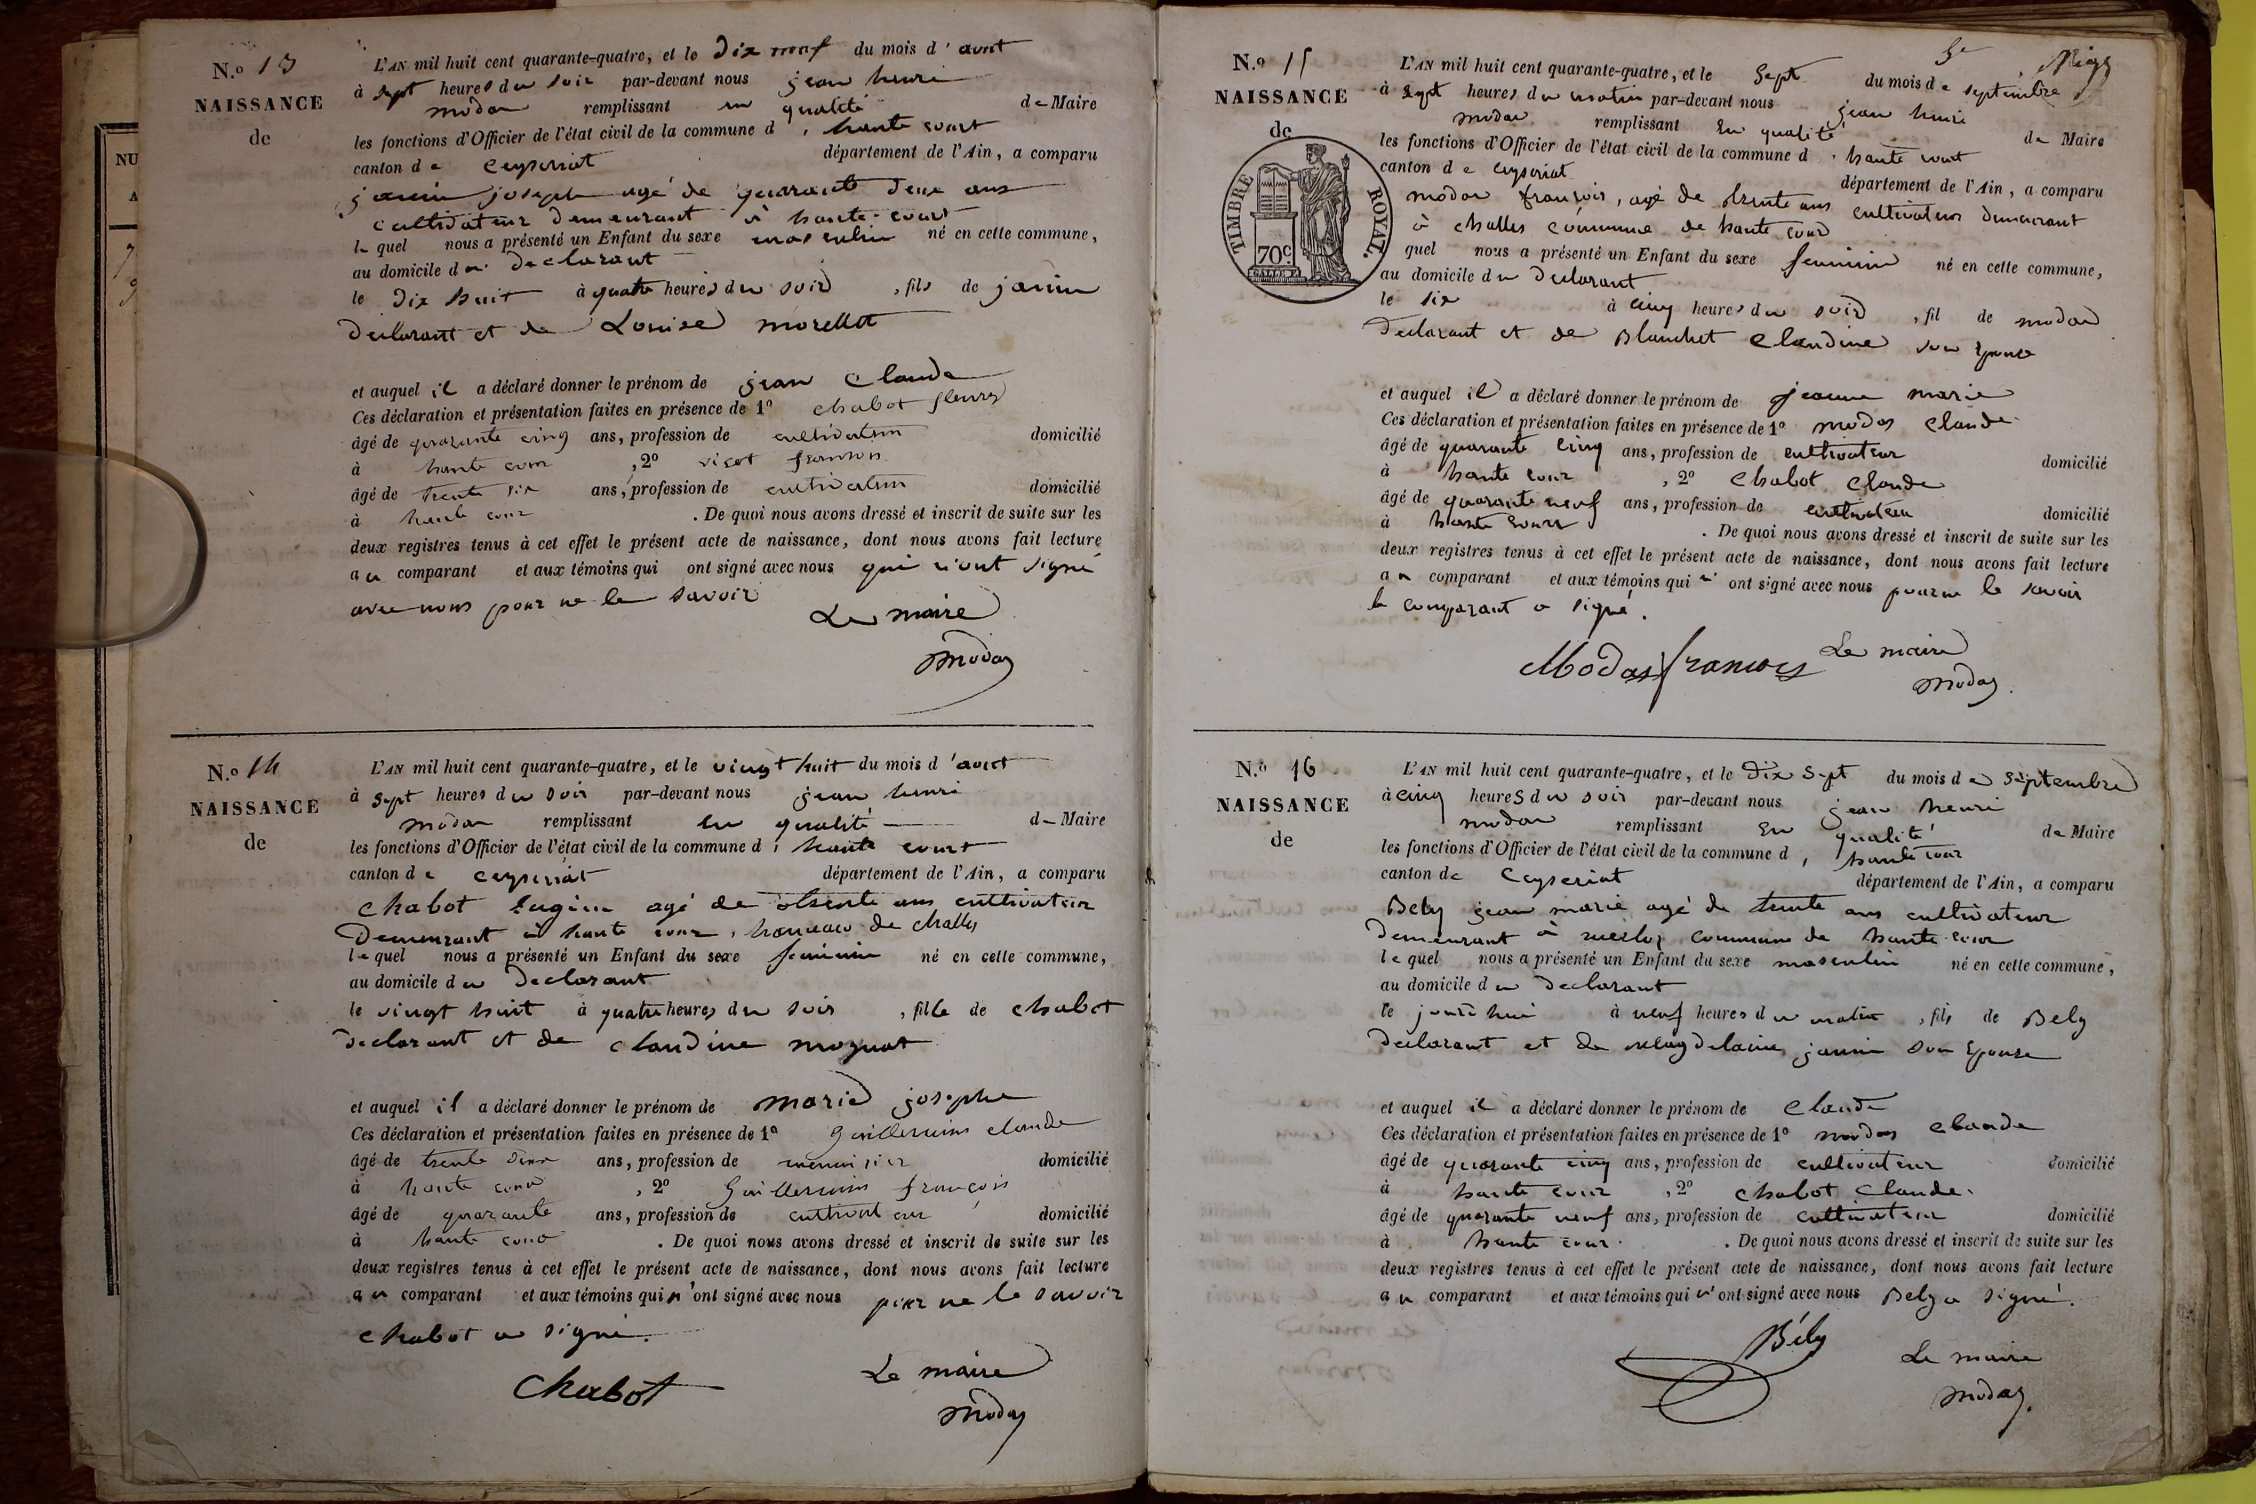 N.o 13
NAISSANCE
de
L'AN mil huit cent quarante-quatre, et le Dix neuf du mois d'aout
à sept heures du soir par-devant nous jean henri
modas remplissant en qualité de Maire
les fonctions d'Officier de l'état civil de la commune d' haute court
canton de Ceyseriat département de l'Ain, a comparu
janin joseph agé de quarante deux ans
cultivateur demeurant à haute-court
le quel nous a présenté un Enfant du sexe masculin né en cette commune,
au domicile du declarant
le dix huit à quatre heures du soir, fils de janin
declarant et de Louise morellet
et auquel il a déclaré donner le prénom de jean Claude
Ces déclaration et présentation faites en présence de 1o chabot
âgé de quarante cinq ans, profession de cultivateur domicilié
à haute cour, 2o françois
âgé de trente six ans, profession de cultivateur domicilié
à haute cour. De quoi nous avons dressé et inscrit de suite sur les
deux registres tenus à cet effet le présent acte de naissance, dont nous avons fait lecture
au comparant et aux témoins qui ont signé avec nous qui n'ont signé
avec nous pour ne le savoir
Le maire
Modas
N.o 14
NAISSANCE
de
L'AN mil huit cent quarante-quatre, et le vingt huit du mois d'aout
à sept heures du soir par-devant nous jean henri
modas remplissant en qualité de Maire
les fonctions d'Officier de l'état civil de la commune d' haute court
canton de ceyseriat département de l'Ain, a comparu
chabot Eugène agé de trente ans cultivateur
Demeurant à haute cour, hameau de challes
lequel nous a présenté un Enfant du sexe féminin né en cette commune,
au domicile du declarant
le vingt huit à quatre heures du soir, fille de chabot
declarant et de claudine moguat
et auquel il a déclaré donner le prénom de marie josephe
Ces déclaration et présentation faites en présence de 1o Guillermin claude
âgé de trente deux ans, profession de menuisier domicilié
à haute cour, 2o Guillermin françois
âgé de quarante ans, profession de cultivateur domicilié
à haute cour. De quoi nous avons dressé et inscrit de suite sur les
deux registres tenus à cet effet le présent acte de naissance, dont nous avons fait lecture
au comparant et aux témoins qui n'ont signé avec nous pour ne le savoir
Chabot a signé.
Chabot
Le maire
Modas
N.o 15
NAISSANCE
de
TIMBRE ROYAL.
70c
5e
L'AN mil huit cent quarante-quatre, et le Sept du mois de septembre
à sept heures du matin par-devant nous jean henri
modas remplissant en qualité de Maire
les fonctions d'Officier de l'état civil de la commune d' haute cour
canton de ceyseriat département de l'Ain, a comparu
modas françois, agé de trente ans cultivateur demeurant
à challes commune de haute cour
quel nous a présenté un Enfant du sexe feminin né en cette commune,
au domicile du declarant
le six à cinq heures du soir, fil de modas
declarant et de Blanchet Claudine son epouse
et auquel il a déclaré donner le prénom de jeanne marie
Ces déclaration et présentation faites en présence de 1o modas Claude
âgé de quarante cinq ans, profession de cultivateur domicilié
à haute cour, 2o Chabot Claude
âgé de quarante neuf ans, profession de cultivateur domicilié
à haute cour. De quoi nous avons dressé et inscrit de suite sur les
deux registres tenus à cet effet le présent acte de naissance, dont nous avons fait lecture
au comparant et aux témoins qui n'ont signé avec nous pour ne le savoir
le comparant a signé.
Modas francois
Le maire
Modas
N.o 16
NAISSANCE
de
L'AN mil huit cent quarante-quatre, et le Dix Sept du mois de Septembre
à cinq heures du soir par-devant nous jean henri
modas remplissant en qualité de Maire
les fonctions d'Officier de l'état civil de la commune d' haute cour
canton de Ceyseriat département de l'Ain, a comparu
Bely jean marie agé de trente ans cultivateur
demeurant à commune de haute cour
lequel nous a présenté un Enfant du sexe masculin né en cette commune,
au domicile du declarant
le jourd'hui à neuf heures du matin, fils de Bely
declarant et de Magdelaine janin son epouse
et auquel il a déclaré donner le prénom de Claude
Ces déclaration et présentation faites en présence de 1o modas claude
âgé de quarante cinq ans, profession de cultivateur domicilié
à haute cour, 2o chabot Claude.
âgé de quarante neuf ans, profession de cultivateur domicilié
à haute cour. De quoi nous avons dressé et inscrit de suite sur les
deux registres tenus à cet effet le présent acte de naissance, dont nous avons fait lecture
au comparant et aux témoins qui n'ont signé avec nous Bely a signé.
Bély
Le maire
Modas.